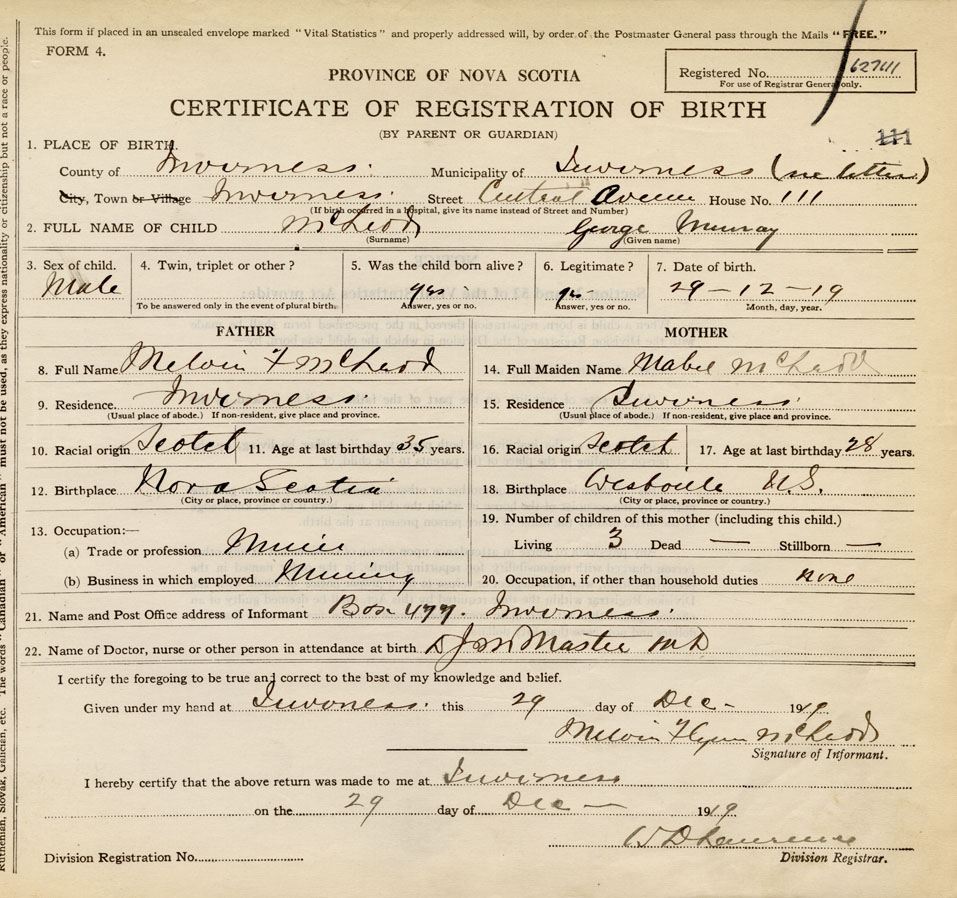 This form if placed in an unsealed envelope marked "Vital Statistics" and properly addressed will, by order of the Postmaster General pass through the Mails "FREE."
FORM 4.
Registered No.
For use of Registrar General only.
PROVINCE OF NOVA SCOTIA
CERTIFICATE OF REGISTRATION OF BIRTH
(BY PARENT OR GUARDIAN)
111
1. PLACE OF BIRTH.
County of Inverness. Municipality of Inverness (see letter)
City, Town or Village Inverness. Street Central Avenue House No. 111
(If birth occurred in a hospital, give its name instead of Street and Number)
2. FULL NAME OF CHILD McLeod George Murray
(Surname) (Given name)
3. Sex of child. 4. Twin, triplet or other? 5. Was the child born alive? 6. Legitimate? 7. Date of birth.
Male yes yes 29-12-19
To be answered only in the event of plural birth. Answer, yes or no. Answer, yes or no. Month, day, year.
FATHER
8. Full Name Melvin F McLeod
9. Residence. Inverness.
(Usual place of abode.) If non-resident, give place and province.
10. Racial origin Scotch 11. Age at last birthday 35 years.
12. Birthplace Nova Scotia
(City or place, province or country.)
13. Occupation:—
(a) Trade or profession Miner
(b) Business in which employed Mining
MOTHER
14. Full Maiden Name Mabel McLeod
15. Residence Inverness
(Usual place of abode.) If non-resident, give place and province.
16. Racial origin Scotch 17. Age at last birthday 28 years.
18. Birthplace Westville N.S.
(City or place, province or country.)
19. Number of children of this mother (including this child.)
Living 3 Dead — Stillborn —
20. Occupation, if other than household duties none
21. Name and Post Office address of Informant Box 477. Inverness.
22. Name of Doctor, nurse or other person in attendance at birth McMaster MD
I certify the foregoing to be true and correct to the best of my knowledge and belief.
Given under my hand at Inverness. this 29 day of Dec - 1919.
Melvin Flynn McLeod
Signature of Informant.
I hereby certify that the above return was made to me at Inverness
on the 29 day of Dec — 1919
W D Lawrence
Division Registrar.
Division Registration No.
Ruthenian, Slovak, Galician, etc. The words "Canadian" or "American" must not be used, as they express nationality or citizenship but not a race or people.